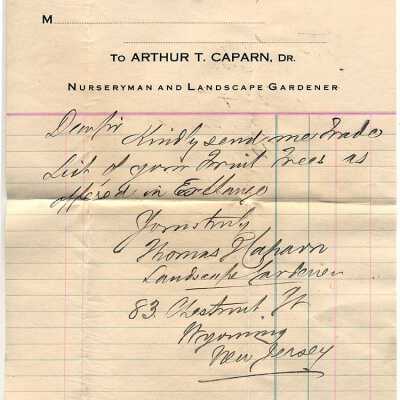 M
To ARTHUR T. CAPARN, DR.
NURSERYMAN AND LANDSCAPE GARDENER
Dear Sir
Kindly send me Trade
List of your Fruit Trees as
offered in Exchange
Yours truly
Thomas J Caparn
Landscape Gardener
83 Chestnut St
Wyoming
New Jersey